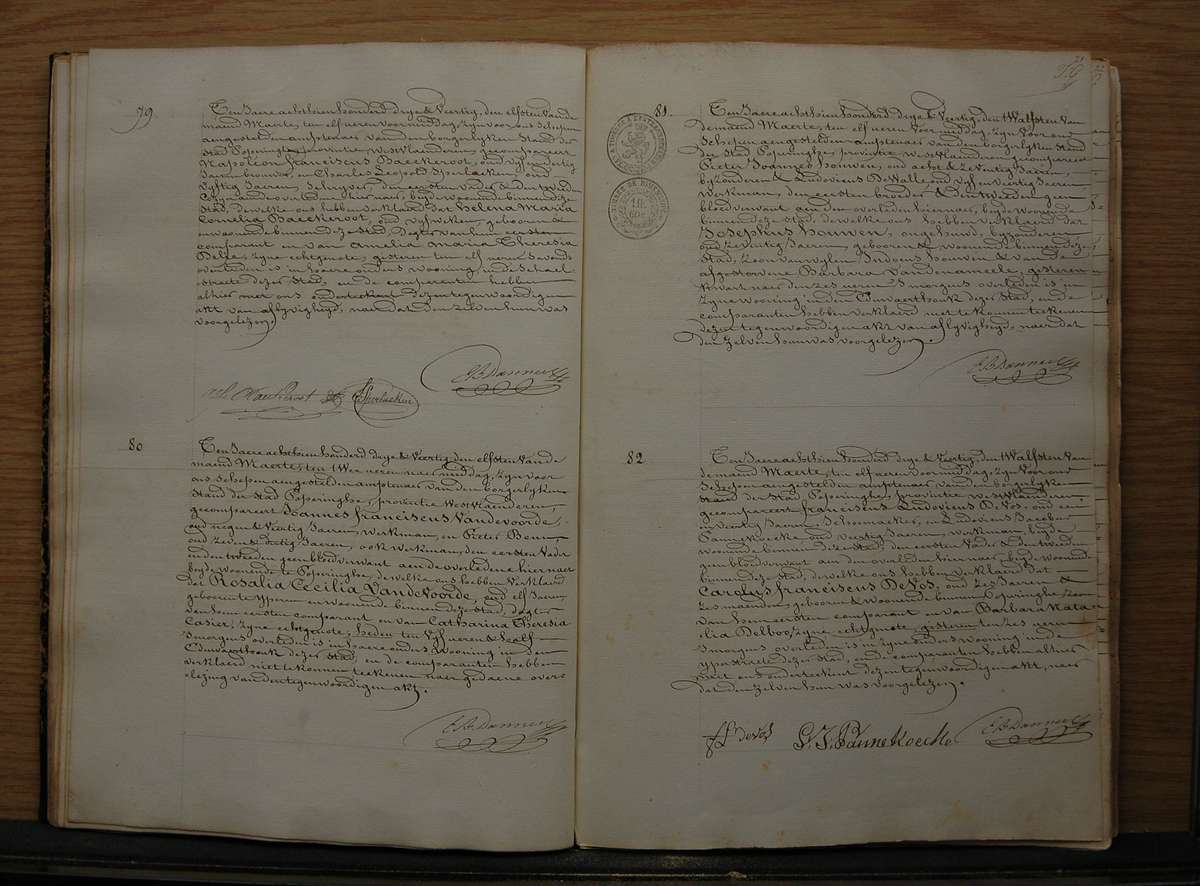 79
Ten Jaere achttien honderd drye & Veertig, den elfsten van de
maend Maerte, ten elf ueren voormiddag, zyn voor ons Schepen
aengestelden amptenaer van den borgerlyken Stand der
stad Poperinghe, provintie Westvlaenderen, gecompareert
Napoleon Franciscus Baeckeroot, oud vyf en dertig
Jaeren brouwer, en Charles Leopold Sperlaeken, oud
vyftig Jaeren, Schryver, den eersten vader & den tweeden
hier naer, beyde woonende binnen deze
Stad, dewelke ons hebben verklaerd dat Helena Maria
Cornelia Baeckeroot, oud vyf weken, gebooren &
woonende binnen deze Stad, Dogter van hun eersten
comparant en van Amelia Maria Theresia
zyne echtgenote, gisteren ten elf ueren 's avonds
overleden is in haere ouders wooning, in de
straete dezer Stad, en de comparenten hebben
alhier met ons onderteekent dezen tegenwoordigen
akt van aflyvighyd, naer dat den zelven hun was
voorgelezen.
80
Ten Jaere achttien honderd drye & Veertig, den elfsten van de
maend Maerte, ten twee ueren naer middag, zyn voor
ons Schepen aengestelden amptenaer van den borgerlyken
Stand der Stad Poperinghe, provintie Westvlaenderen,
gecompareert Joannes Franciscus Vandevoorde,
oud negen & Veertig Jaeren, werkman, en Pieter
oud zeven & dertig Jaeren, ook werkman, den eersten Vader
en den tweeden geen bloedverwant aen de overledene hiernaer
beyde woonende te Poperinghe, dewelke ons hebben verklaerd
dat Rosalia Cecilia Vandevoorde, oud elf Jaeren,
geboren te Yperen en woonende binnen deze stad, Dogter
van hem eersten comparant en van Catharina Theresia
Casier, zyne echtgenote, heden ten vyf ueren & half
's morgens overleden is in haere ouders wooning in den
dezer Stad, en de comparanten hebben
verklaerd niet te konnen teekenen naer gedaene over-
lezing van den tegenwoordigen akt.
81.
Ten Jaere achttien honderd drye & Veertig, den twalfsten van
de maend Maerte, ten elf ueren voormiddag, zyn voor ons
Schepen aengestelden amptenaer van den borgerlyken Stand
der Stad Poperinghe, provintie Westvlaenderen gecompareert
Pieter Joannes Houwen, oud acht & zeventig Jaeren,
byzonderen & Ludovicus DeWalle, oud vyf en veertig Jaeren
werkman, den eersten broeder & den tweeden geen
bloedverwant aen den overleden hiernaer, beyde woonende
binnen deze stad, dewelke ons hebben verklaerd dat
Josephus Houwen, ongehuwd, byzonderen
oud zeventig Jaeren, gebooren & woonende binnen deze
Stad, Zoon van wylen Judocus Houwen & van de
afgestorvene Barbara Vandenameele, gisteren
kwart naer den zes ueren 's morgens overleden is in
zyne wooning in den dezer Stad, en de
comparanten hebben verklaerd niet te konnen teekenen
dezen tegenwoordigen akt van aflyvighyd, naer dat
den zelven hun was voorgelezen.
82
Ten Jaere achttien honderd drye & Veertig, den twalfsten van
de maend Maerte, ten elf ueren voormiddag, zyn voor ons
Schepen aengestelden amptenaer van den borgerlyken
stand der Stad Poperinghe, provintie Westvlaenderen,
gecompareert Franciscus Ludovicus DeVos, oud een
en veertig Jaeren, Schoenmaeker, en Ludovicus Jacobus
Pannekoecke oud veertig Jaeren, werkman, beyde
woonende binnen deze stad, den eersten Vader & den tweeden
geen bloedverwant aen den overleden hiernaer, beyde woonende
binnen deze stad, dewelke ons hebben verklaerd dat
Carolus Franciscus DeVos, oud zes Jaeren &
zes maenden, gebooren & woonende binnen Poperinghe Zoon
van hem eersten comparant en van Barbara Nata-
lia Delboo, zyne echtgenote, gisteren ten zes ueren
's morgens overleden is in zyne ouders wooning in de
yperstraete dezer stad, en de comparenten hebben alhier
met ons onderteekent dezen tegenwoordigen akt, naer
dat den zelven hun was voorgelezen.
FL Devos
Pannekoecke